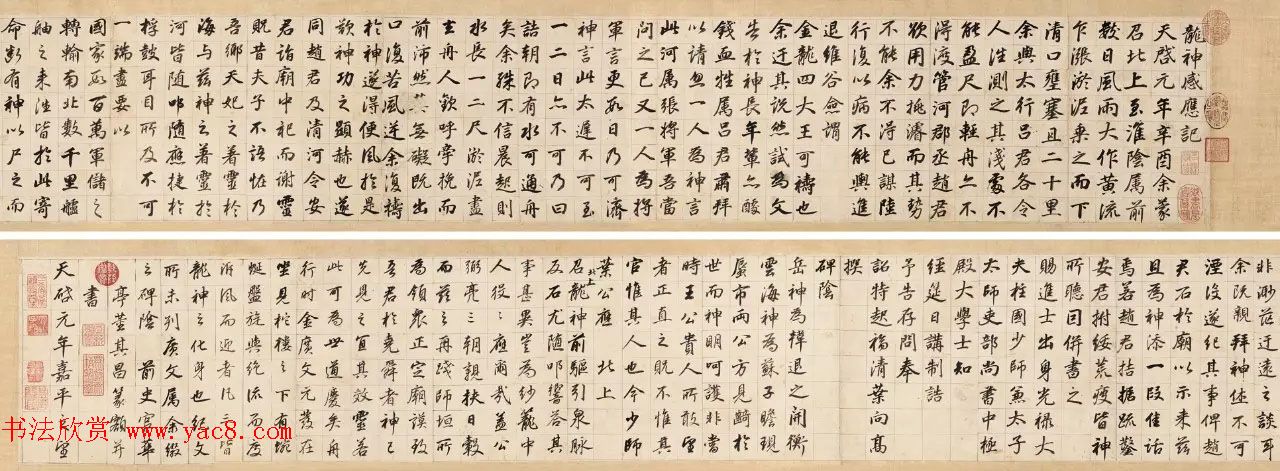 龍神感應記
天啓元年辛酉余蒙
召北上至淮陰属前
数日風雨大作黄流
乍漲淤泥乘之而下
清口壅塞且二十里
余與太行吕君各令
人往測之其淺處不
能盈尺即輕舟亦不
得渡管河郡丞趙君
欲用力挑濬而其勢
不能余不得已謀陸
行復以病不能輿進
退維谷僉謂
金龍四大王可禱也
余迂其説然試為文
告於神長年輩亦醵
錢血牲属吕君肅拜
以請忽一人為神言
此河属張将軍吾當
問之已又一人為将
軍言更數日乃可濟
神言此太遲不可至
一二日亦不可乃曰
詰朝即有水可通舟
矣余殊不信晨起則
水長一二尺淤泥盡
去舟人歡呼牽挽而
前沛然無礙既出
口復苦風逆余復禱
於神遂得便風於是
歎神功之顯赫也遂
同趙君及清河令安
君詣廟中祀而謝靈
貺昔夫子不語怪乃
吾鄉天妃之著靈於
海与茲神之著靈於
河皆随叩随應捷於
桴鼓耳目所及不可
一端盡要以
國家數百萬軍儲之
轉輸南北數千里艫
舳之来往皆於此寄
命断有神以尸之而
非渺茫迂遠之談耳
余既親拜神休不可
湮没遂紀其事俾趙
君石於廟以示来茲
且為神添一段佳話
焉若趙君拮据疏鑿
安君拊綏荒瘦皆神
所聽因併書之
賜進士出身光禄大
夫柱國少師兼太子
太師吏部尚書中極
殿大學士知
經筵日講制誥
予告存問奉
詔特起福清葉向高
撰
碑陰
岳神為韓退之開衡
雲海神為蘇子瞻現
蜃市两公方見齮於
世而神明呵護非當
時王公貴人所敢望
者正直之既不惟其
官惟其人也今少師
葉公應 北上
召北上龍神前驅引泉脉
及石尤随叩響答其
事甚異豈為紗籠中
人役役應爾哉盖公
弼亮三朝親扶日轂
而茲再踐師垣所
為領衆正廟謨致
吾君於堯舜者神已
先見之其效靈若
此可為世道慶矣舟
行時金廣文元發在
坐見於樓之下有蜿
蜒盤旋與絶流而度
泝風而迎者凡三皆
龍神之化身也紀文
所未列廣文属余綴
之碑陰 前史官華
亭董其昌篆額并
書
天啓元年嘉平月望
书法欣赏
www.yac8.com